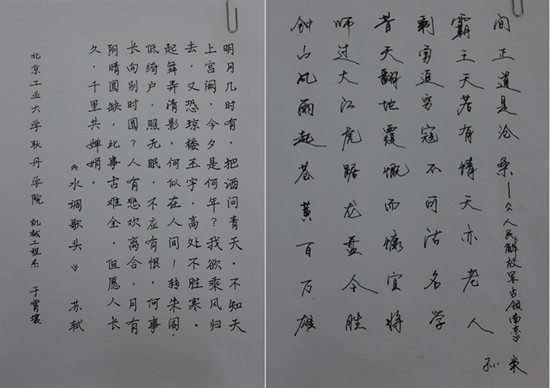 明月几时有,把酒问青天。不知天
上宫阙,今夕是何年?我欲乘风归
去,又恐琼楼玉宇,高处不胜寒。
起舞弄清影,何似在人间!转朱阁,
低绮户,照无眠。不应有恨,何事
长向别时圆?人有悲欢离合,月有
阴晴圆缺,此事古难全。但愿人长
久,千里共婵娟。
《水调歌头》 苏轼
北京工业大学耿丹学院 机械工程系 于霄
钟山风雨起苍黄百万雄
师过大江虎踞龙盘今胜
昔天翻地覆慨而慷宜将
剩勇追穷寇不可沽名学
霸王天若有情天亦老人
间正道是沧桑——《人民解放军占领南京》
孙